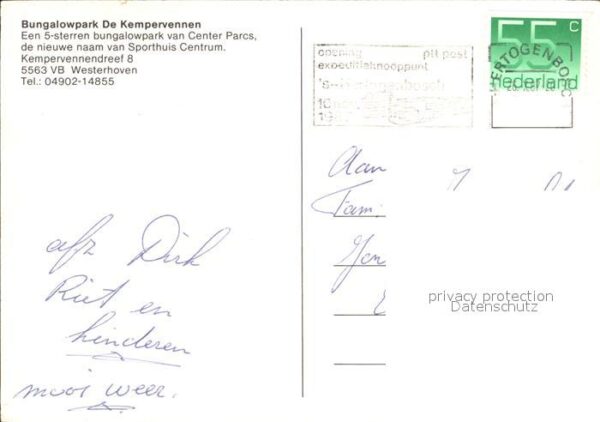 Bungalowpark De Kempervennen
Een 5-sterren bungalowpark van Center Parcs,
de nieuwe naam van Sporthuis Centrum.
Kempervennendreef 8
5563 VB Westerhoven
Tel.: 04902-14855
opening ptt post
expeditieknooppunt
's-Hertogenbosch
55 c
nederland
HERTOGENBOSC
Aan
Fam.
privacy protection
Datenschutz
afz Dirk
Riet en
kinderen
mooi weer.